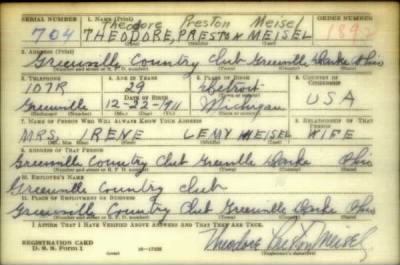 SERIAL NUMBER 1. NAME (Print) ORDER NUMBER
Theodore Preston Meisel
704 THEODORE, PRESTON MEISEL 1892
2. ADDRESS (Print)
Greenville Country Club Greenville Darke Ohio
3. TELEPHONE 4. AGE IN YEARS 5. PLACE OF BIRTH 6. COUNTRY OF CITIZENSHIP
107R 29 Detroit
DATE OF BIRTH
Greenville 12-22-1911 Michigan USA
7. NAME OF PERSON WHO WILL ALWAYS KNOW YOUR ADDRESS 8. RELATIONSHIP OF THAT PERSON
MRS. IRENE LEMY MEISEL WIFE
9. ADDRESS OF THAT PERSON
Greenville Country Club Greenville Darke Ohio
10. EMPLOYER'S NAME
Greenville Country Club
11. PLACE OF EMPLOYMENT OR BUSINESS
Greenville Country Club Greenville Darke Ohio
I AFFIRM THAT I HAVE VERIFIED ABOVE ANSWERS AND THAT THEY ARE TRUE.
REGISTRATION CARD
D. S. S. Form 1 Theodore Preston Meisel